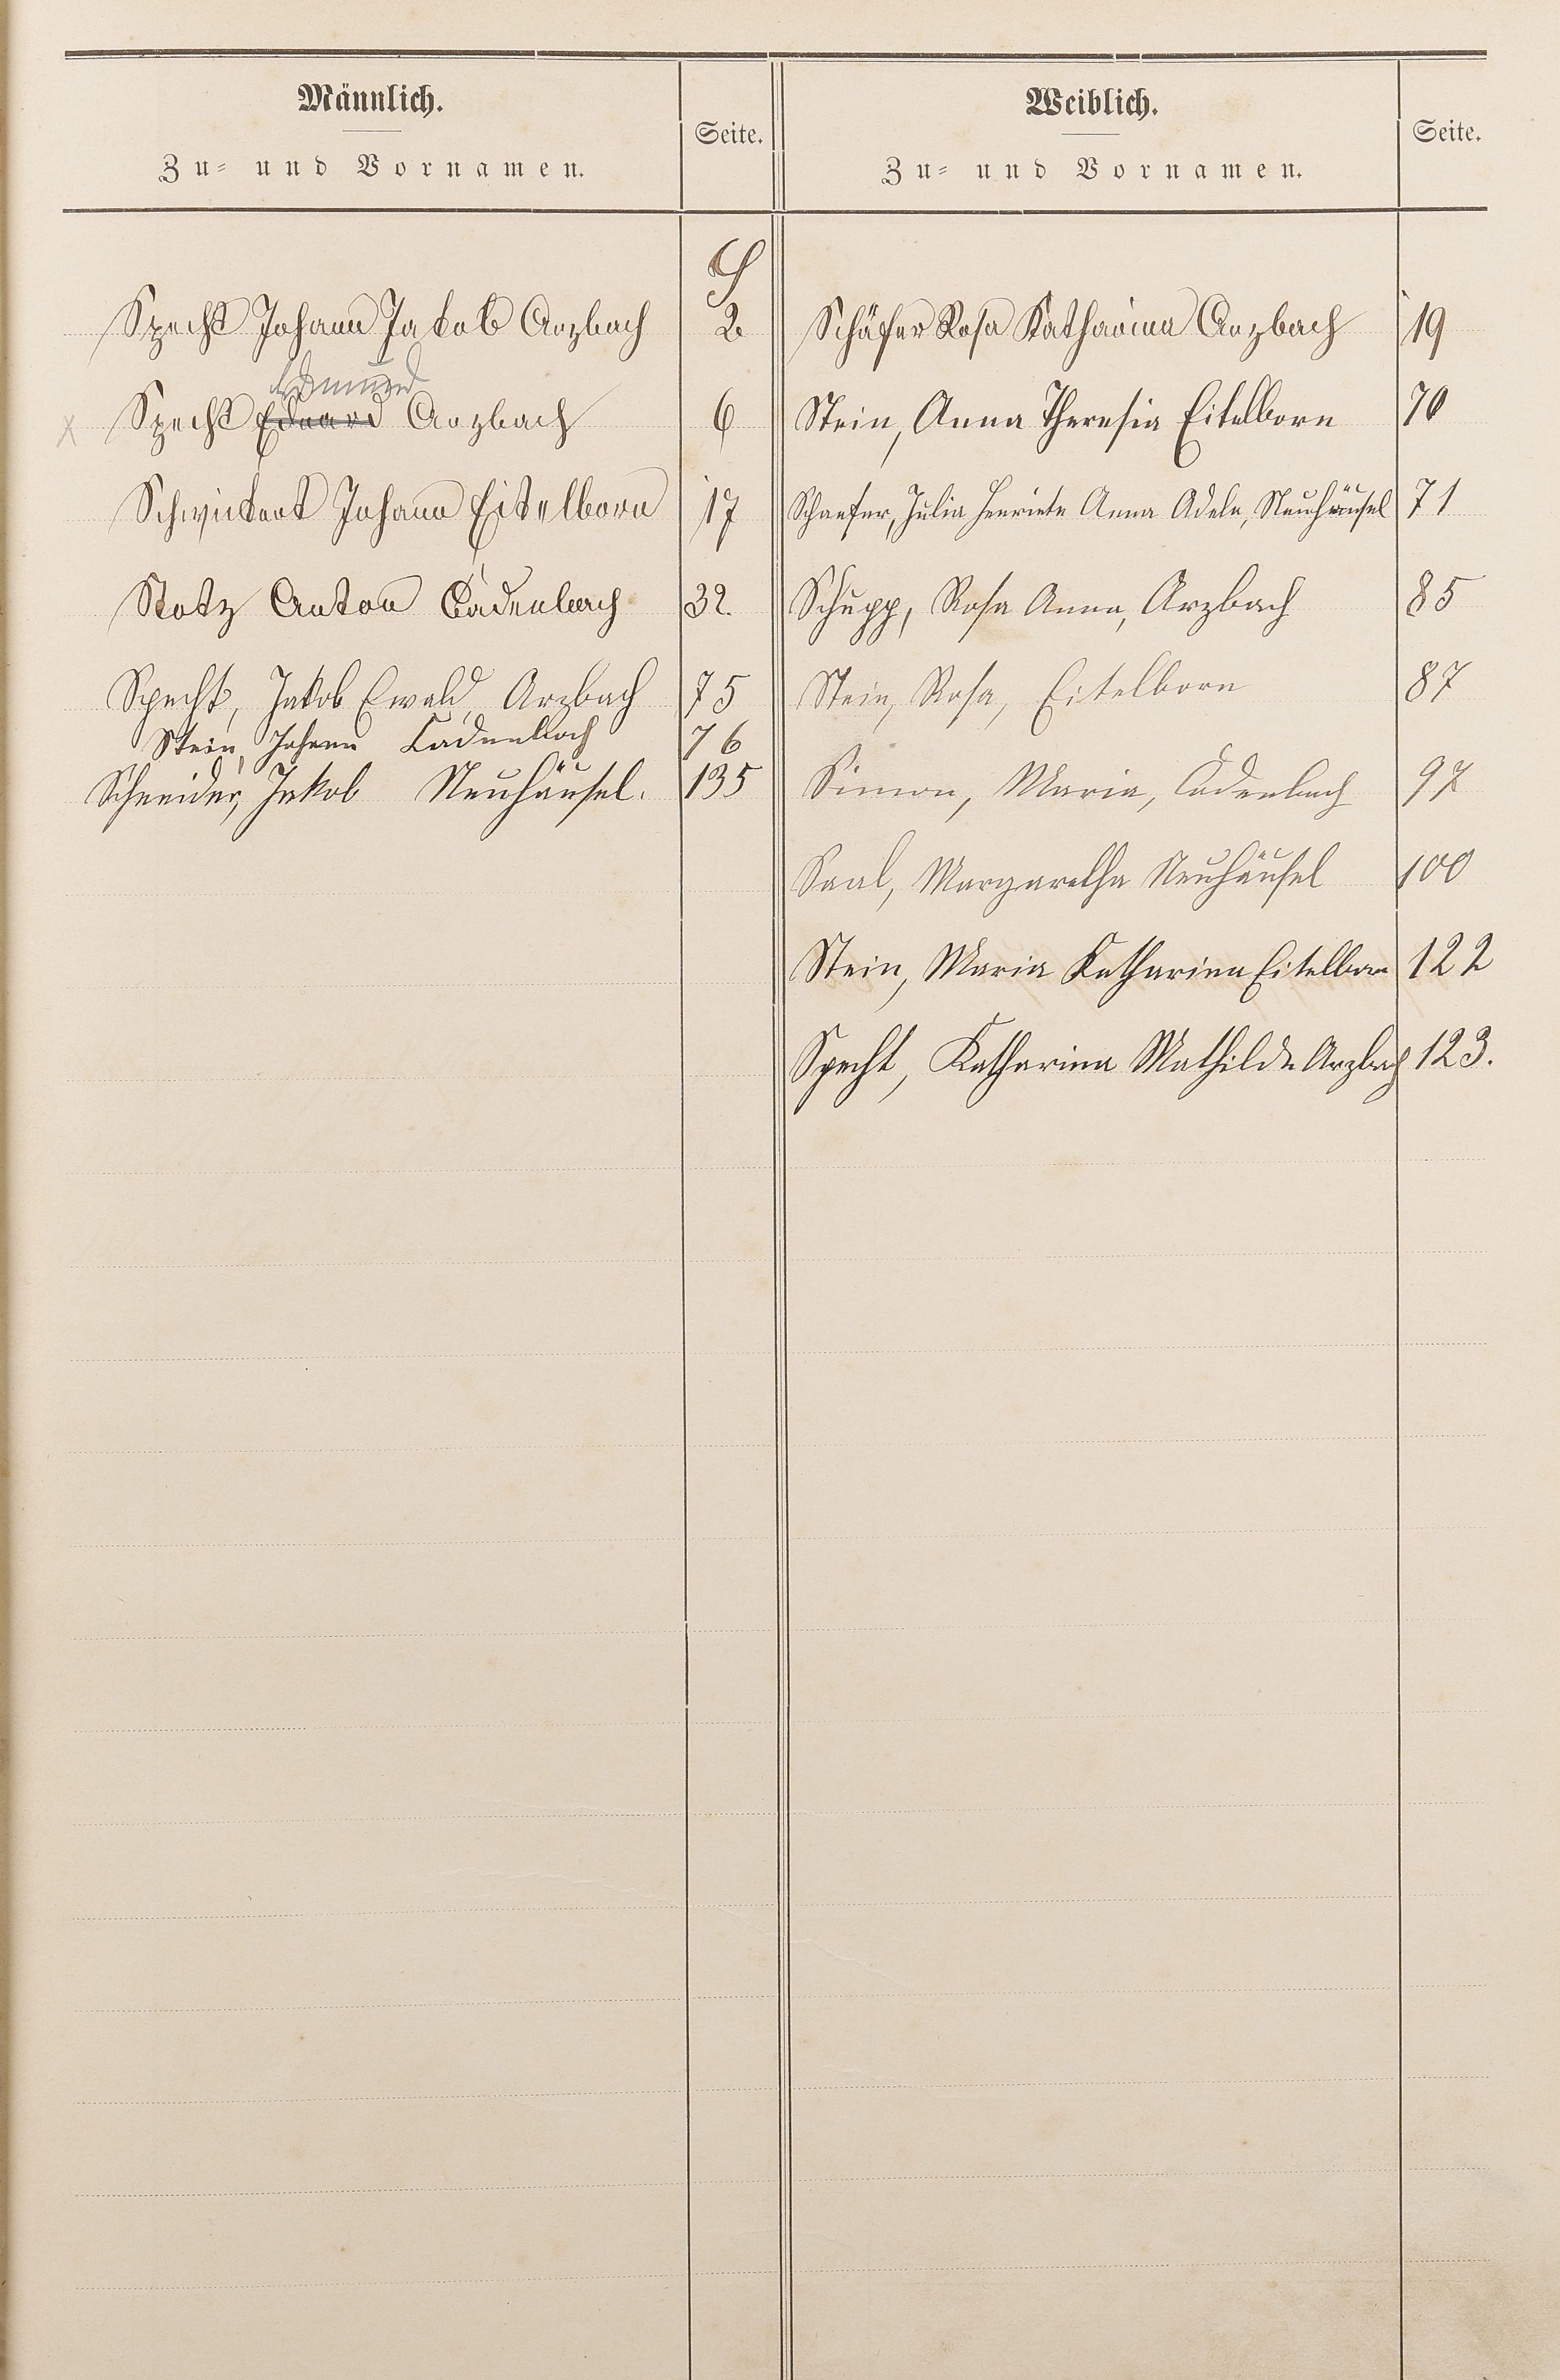 Männlich.
Zu- und Vornamen.
Seite.
Weiblich.
Zu- und Vornamen.
Seite.
S
Specht Johann Jakob Arzbach 2
Edmund
x Specht Eduard Arzbach 6
Johann Eitelborn 17
Stotz Anton Cadenbach 32.
Specht, Jakob Ewald, Arzbach 75
Stein, Johann Cadenbach 76
Schneider, Jakob Neuhäusel. 135
Schäfer Rosa Katharina Arzbach 19
Stein, Anna Theresia Eitelborn 70
Schaefer, Julia Henriete Anna Adele, Neuhäusel 71
Schupp, Rosa Anna, Arzbach 85
Stein, Rosa, Eitelborn 87
Simon, Maria, Cadenbach 97
Saal, Margaretha Neuhäusel 100
Stein, Maria Katharina Eitelborn 122
Specht, Katharina Mathilde Arzbach 123.